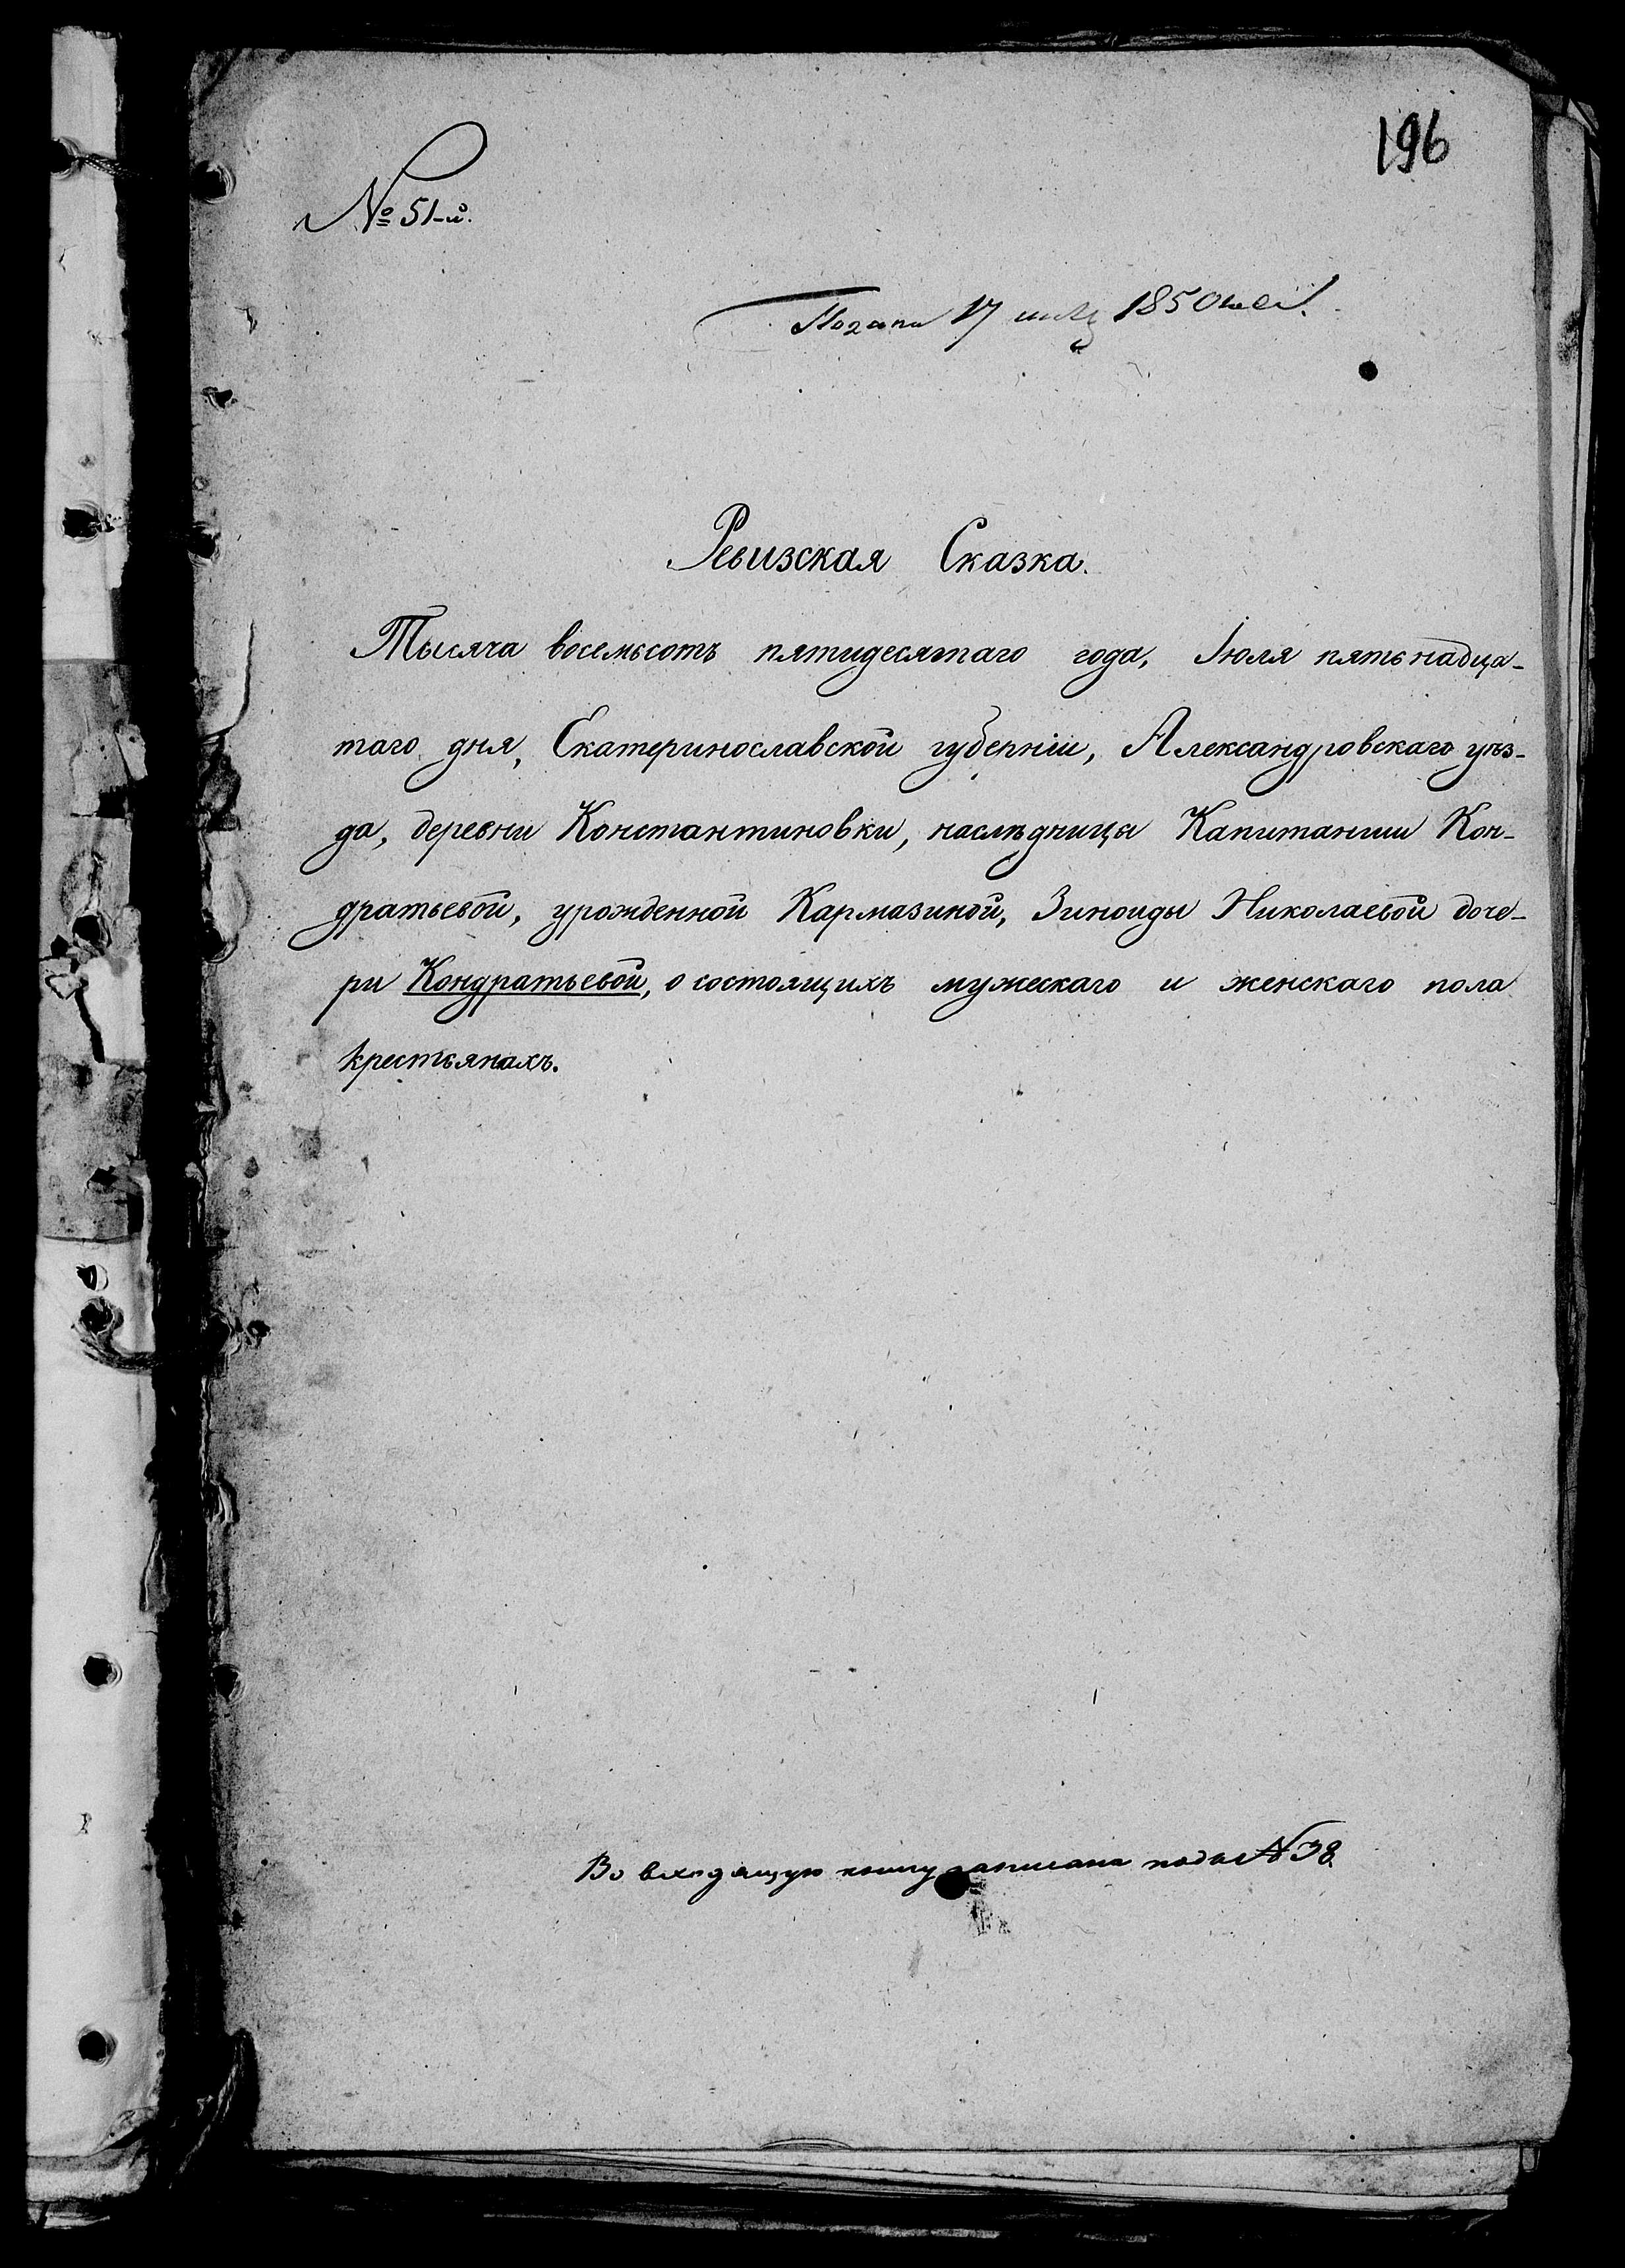 196
№ 51-й.
Подана 17 июля 1850 года.
Ревизская Сказка.
Тысяча восемьсотъ пятидесятаго года, Iюля пятьнадца-
таго дня, Екатеринославской губернiи, Александровскаго уѣз-
да, деревни Константиновки, наслѣдница Капитанши Кон-
дратьевой, урожденной Кармазиной, Зиноиды Николаевой доче-
ри Кондратьевой, о состоящихъ мужескаго и женскаго пола
крестьянахъ.
Во входящую книгу записана подъ № 38